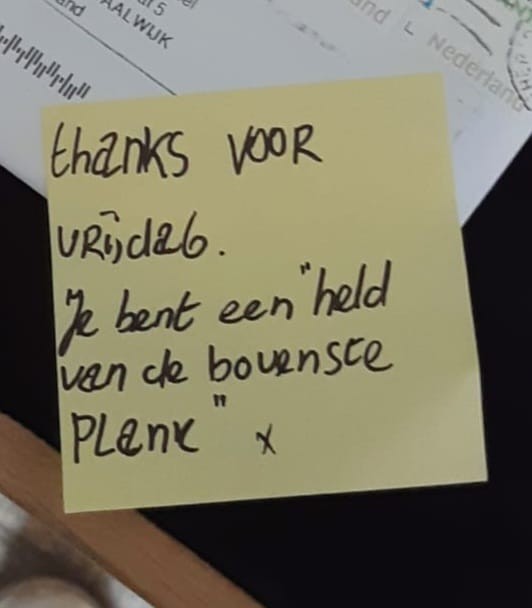 5
AALWIJK
Nederland
thanks VOOR
VRijdag.
Je bent een "held
van de bovenste
Plank" x